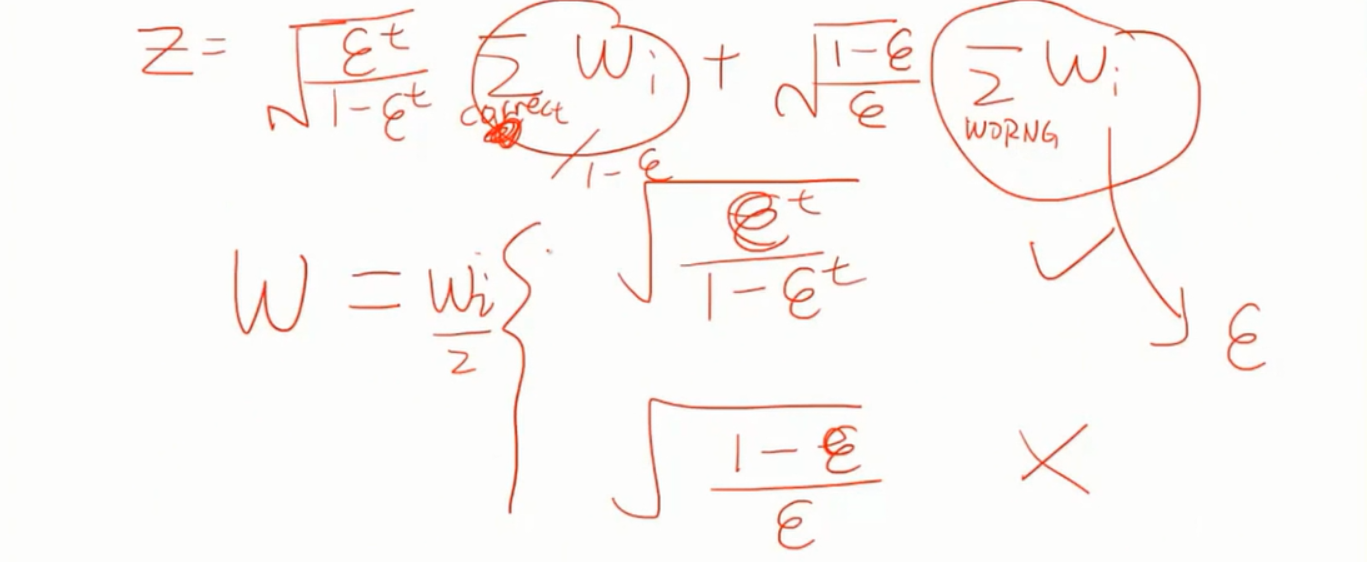 Z = √(ε^t / 1-ε^t) Σ_correct W_i + √(1-ε / ε) Σ_WORNG W_i
1-ε
W = W_i / 2 { √(ε^t / 1-ε^t) ✓
ε
√(1-ε / ε) ×